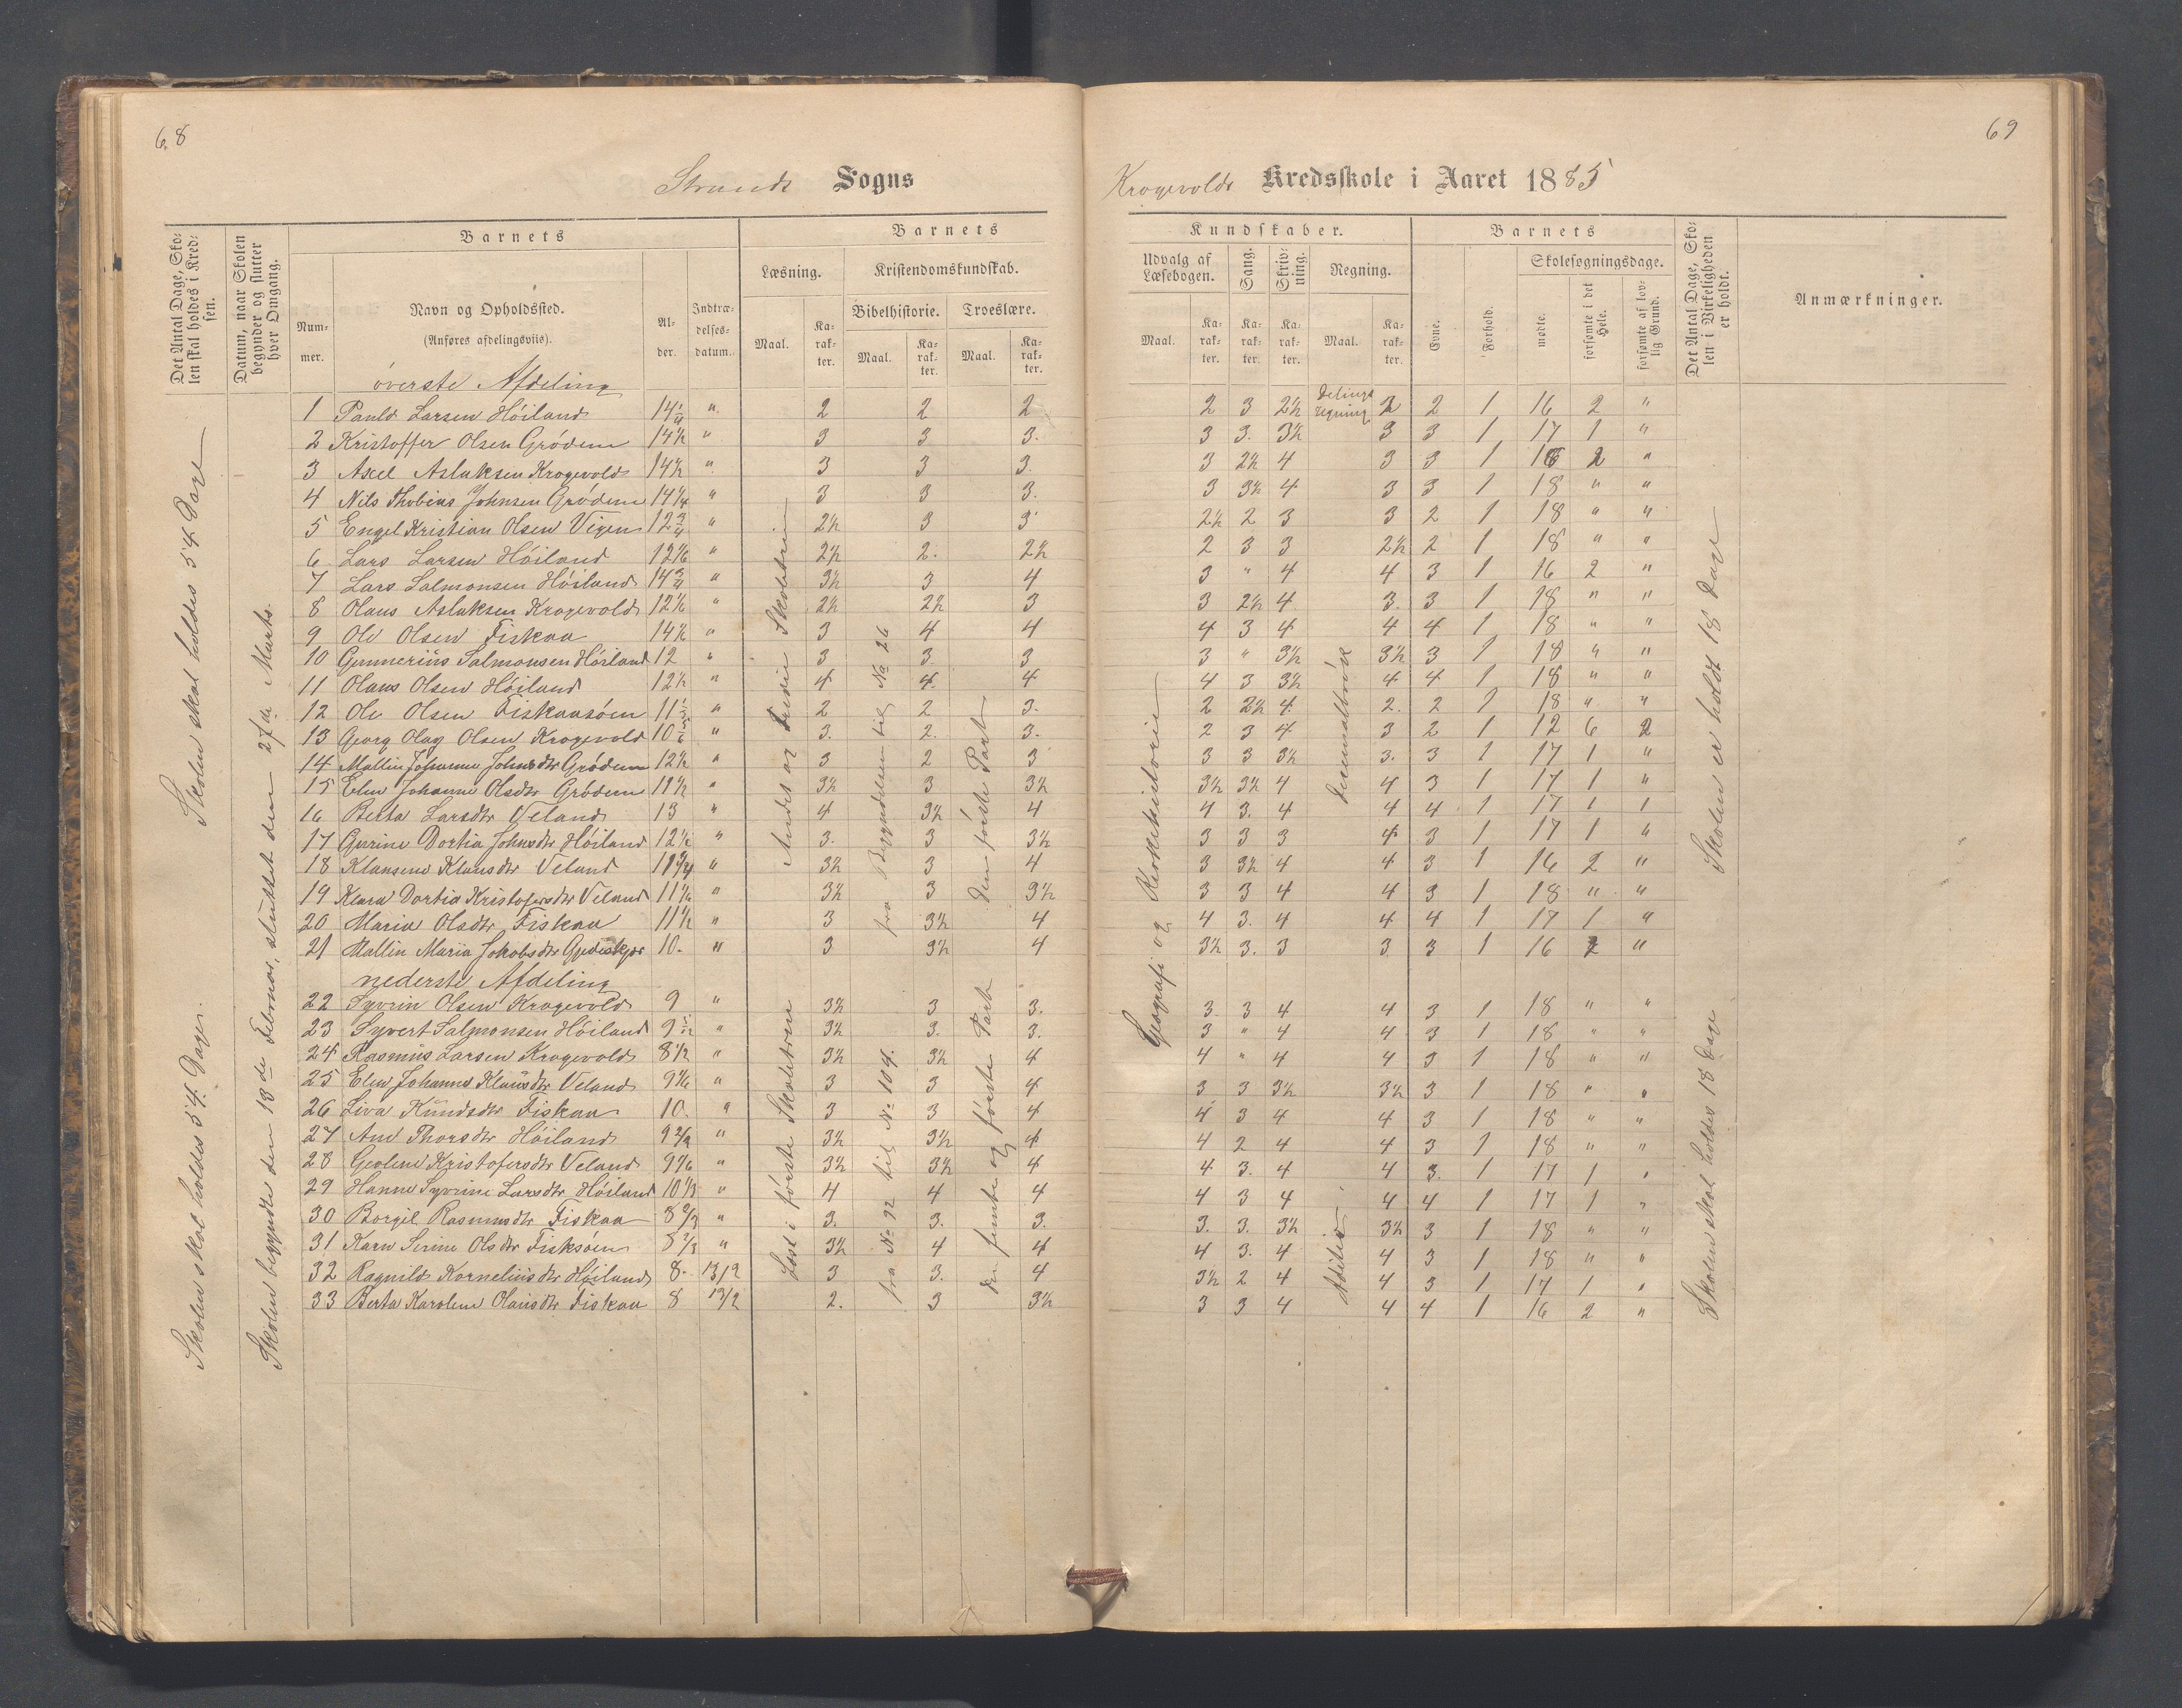 68
69
Strands Sogns
Krogevolds Kredsskole i Aaret 1885
Det Antal Dage, Skolen skal holdes i Kredsen.
Datum, naar Skolen begynder og slutter hver Omgang.
Barnets
Nummer.
Navn og Opholdssted.
(Anføres afdelingsviis).
Alder.
Indtrædelsesdatum.
Barnets
Læsning.
Kristendomskundskab.
Bibelhistorie. Troeslære.
Maal. Karakter. Maal. Karakter. Maal. Karakter.
Kundskaber.
Udvalg af Læsebogen.
Sang.
Skrivning.
Regning.
Maal. Karakter. Karakter. Karakter. Maal. Karakter.
Barnets
Evne.
Forhold.
Skolesøgningsdage.
mødte.
forsømte i det Hele.
forsømte af lovlig Grund.
Det Antal Dage, Skolen i Virkeligheden er holdt.
Anmærkninger.
Skolen skal holdes 54 Dage
Skolen skal holdes 54 Dage.
Skolen begyndte den 18de Februar, sluttet den 27de Marts.
Andet og tredie Skoletrin
fra Begyndelsen til No 26
den første Part
Geografi og Kirkehistorie
Delings regning
Decimalbrøk
Skolen er holdt 18 Dage
øverste Afdeling
1 Paulo Larsen Höiland 14 1/4 " 2 2 2 2 3 2½ 2 2 1 16 2 "
2 Kristoffer Olsen Gródem 14½ " 3 3 3. 3 3. 3½ 3 3 1 17 1 "
3 Axel Aslaksen Krogevold 14½ " 3 3 3. 3 2½ 4 3 3 1 16 2 "
4 Nils Thobias Johnsen Gródem 14¼ " 3 3 3. 3 3½ 4 3 3 1 18 " "
5 Engel Kristian Olsen Vigen 12¾ " 2½ 3 3 2½ 2 3 3 2 1 18 " "
6 Lars Larsen Höiland 12 1/6 " 2½ 2. 2½ 2 3 3 2½ 2 1 18 " "
7 Lars Salmonsen Höiland 14¾ " 3½ 3 4 3 " 4 4 3 1 16 2 "
8 Olaus Aslaksen Krogevold 12 1/6 " 2½ 2½ 3 3 2½ 4 3. 3 1 18 " "
9 Ole Olsen Fiskaa 14 1/6 " 3 4 4 4 3 4 4 4 1 18 " "
10 Gunnerius Salmonsen Höiland 12 " 3 3. 3 3 " 3½ 3½ 3 1 18 " "
11 Olaus Olsen Höiland 12½ " 4 4. 4 4 3 3½ 4 4 1 18 " "
12 Ole Olsen Fiskaasóen 11 1/3 " 2 2 3. 2 2½ 4 2. 2 1 18 " "
13 Georg Olag Olsen Krogevold 10 5/6 " 3. 2. 3. 2 3 4 3 2 1 12 6 2
14 Mallin Johanne Johnsdtr Gródem 12½ " 3 2 3 3 3 3½ 3. 3 1 17 1 "
15 Elen Johanne Olsdtr Gródem 11½ " 3½ 3 3½ 3½ 3½ 4 4 3 1 17 1 "
16 Berta Larsdtr Veland 13 " 4 3½ 4 4 3. 4 4 4 1 17 1 1
17 Gurine Dortia Johnsdtr Höiland 12½ " 3. 3 3½ 3 3 3 4 3 1 17 1 "
18 Klausine Klausdtr Veland 11¾ " 3½ 3 4 3 3½ 4 4 3 1 16 2 "
19 Klara Dortia Kristofersdtr Veland 11 1/6 " 3½ 3 3½ 3 3 4 4 3 1 18 " "
20 Maria Olsdtr Fiskaa 11½ " 3 3½ 4 4 3. 4 4 4 1 17 1 "
21 Mallin Maria Jakobsdtr 10. " 3 3½ 4 3½ 3. 3 3 3 1 16 2 "
nederste Afdeling
Læst i første Skoletrin
fra No 92 til No 104.
den femte og første Part
Addition
Skolen skal holdes 18 Dage
22 Syvrin Olsen Krogevold 9 " 3½ 3 3. 3. 3 4 4 3 1 18 " "
23 Syvert Salmonsen Höiland 9 5/12 " 3½ 3. 3. 3 " 4 4 3 1 18 " "
24 Rasmus Larsen Krogevold 8½ " 3½ 3½ 4 4 " 4 4 3 1 18 " "
25 Elen Johanne Klausdtr Veland 9 1/6 " 3 3 4 3 3 3½ 3½ 3 1 18 " "
26 Liva Knudsdtr Fiskaa 10. " 3 3 4 4 3 4 4 3 1 18 " "
27 Ane Thorsdtr Höiland 9 2/3 " 3½ 3½ 4 4 2 4 4 3 1 18 " "
28 Geoline Kristofersdtr Veland 9 1/6 " 3½ 3½ 4 4 3. 4 4 3. 1 17 1 "
29 Hanne Syvrine Larsdtr Höiland 10 1/3 " 4 4 4 4 3 4 4 4 1 17 1 "
30 Borgil Rasmusdtr Fiskaa 8 2/3 " 3. 3. 3. 3. 3. 3½ 3½ 3 1 18 " "
31 Karn Serine Olsdtr Fisksóen 8 2/3 " 3½ 4 4 4 3. 4 4 3 1 18 " "
32 Ragnild Kornelius dtr Höiland 8. 13/2 3 3. 4 3½ 2 4 4 3 1 17 1 "
33 Berta Karoline Olausdtr Fiskaa 8 13/2 2. 3 3½ 3 3 4 4 4 1 16 2 "